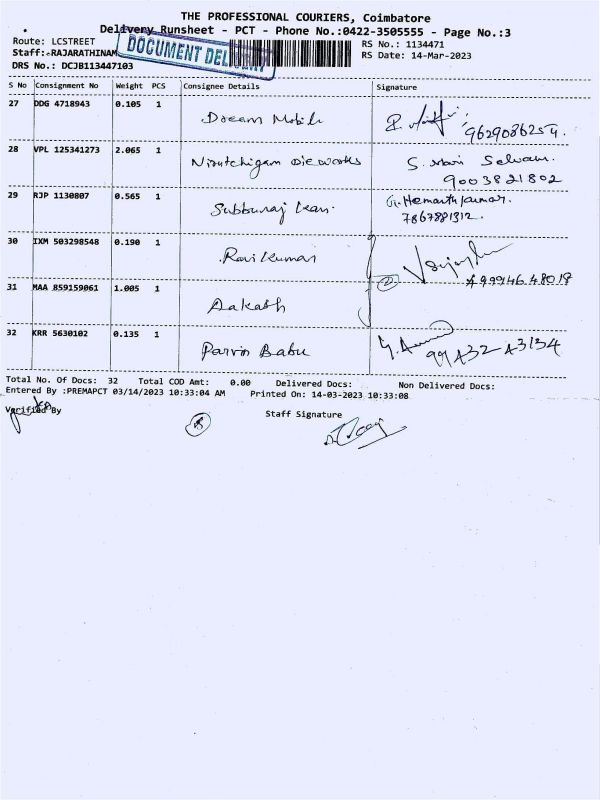 THE PROFESSIONAL COURIERS, Coimbatore
Delivery Runsheet - PCT - Phone No.:0422-3505555 - Page No.:3
Route: LCSTREET
RS No.: 1134471
Staff:-RAJARATHINAM
DOCUMENT DELIVERY
RS Date: 14-Mar-2023
DRS No.: DCJB113447103
S No Consignment No Weight PCS Consignee Details Signature
27 DDG 4718943 0.105 1 Dream Mobile 9629086254.
28 VPL 125341273 2.065 1 Die works S. Mari Selvam.
9003821802
29 RJP 1130807 0.565 1 Subburaj G. Hemanth Kumar.
7867881312.
30 IXM 503298548 0.190 1 Ravi Kumar
31 MAA 859159061 1.005 1 Aakash
32 KRR 5630102 0.135 1 Parvin Babu
Total No. Of Docs: 32 Total COD Amt: 0.00 Delivered Docs: Non Delivered Docs:
Entered By :PREMAPCT 03/14/2023 10:33:04 AM Printed On: 14-03-2023 10:33:08
Verified By
Staff Signature